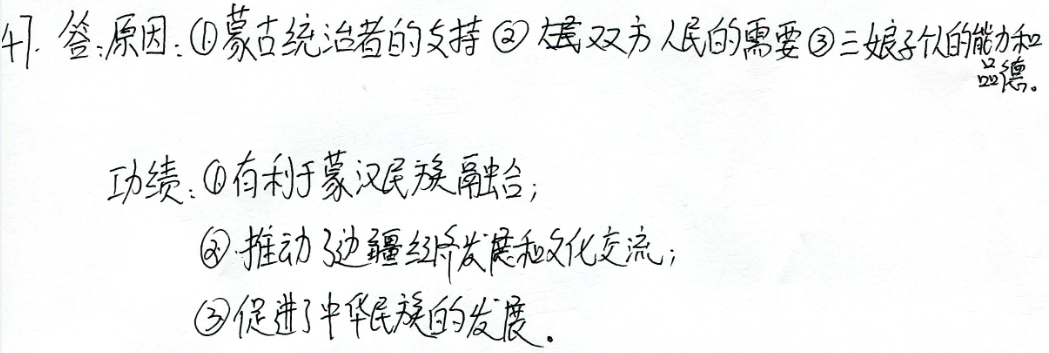 47. 答:原因:①蒙古统治者的支持 ② 双方人民的需要 ③三娘子个人的能力和
品德。
功绩:①有利于蒙汉民族融合;
②推动了边疆经济发展和文化交流;
③促进了中华民族的发展.